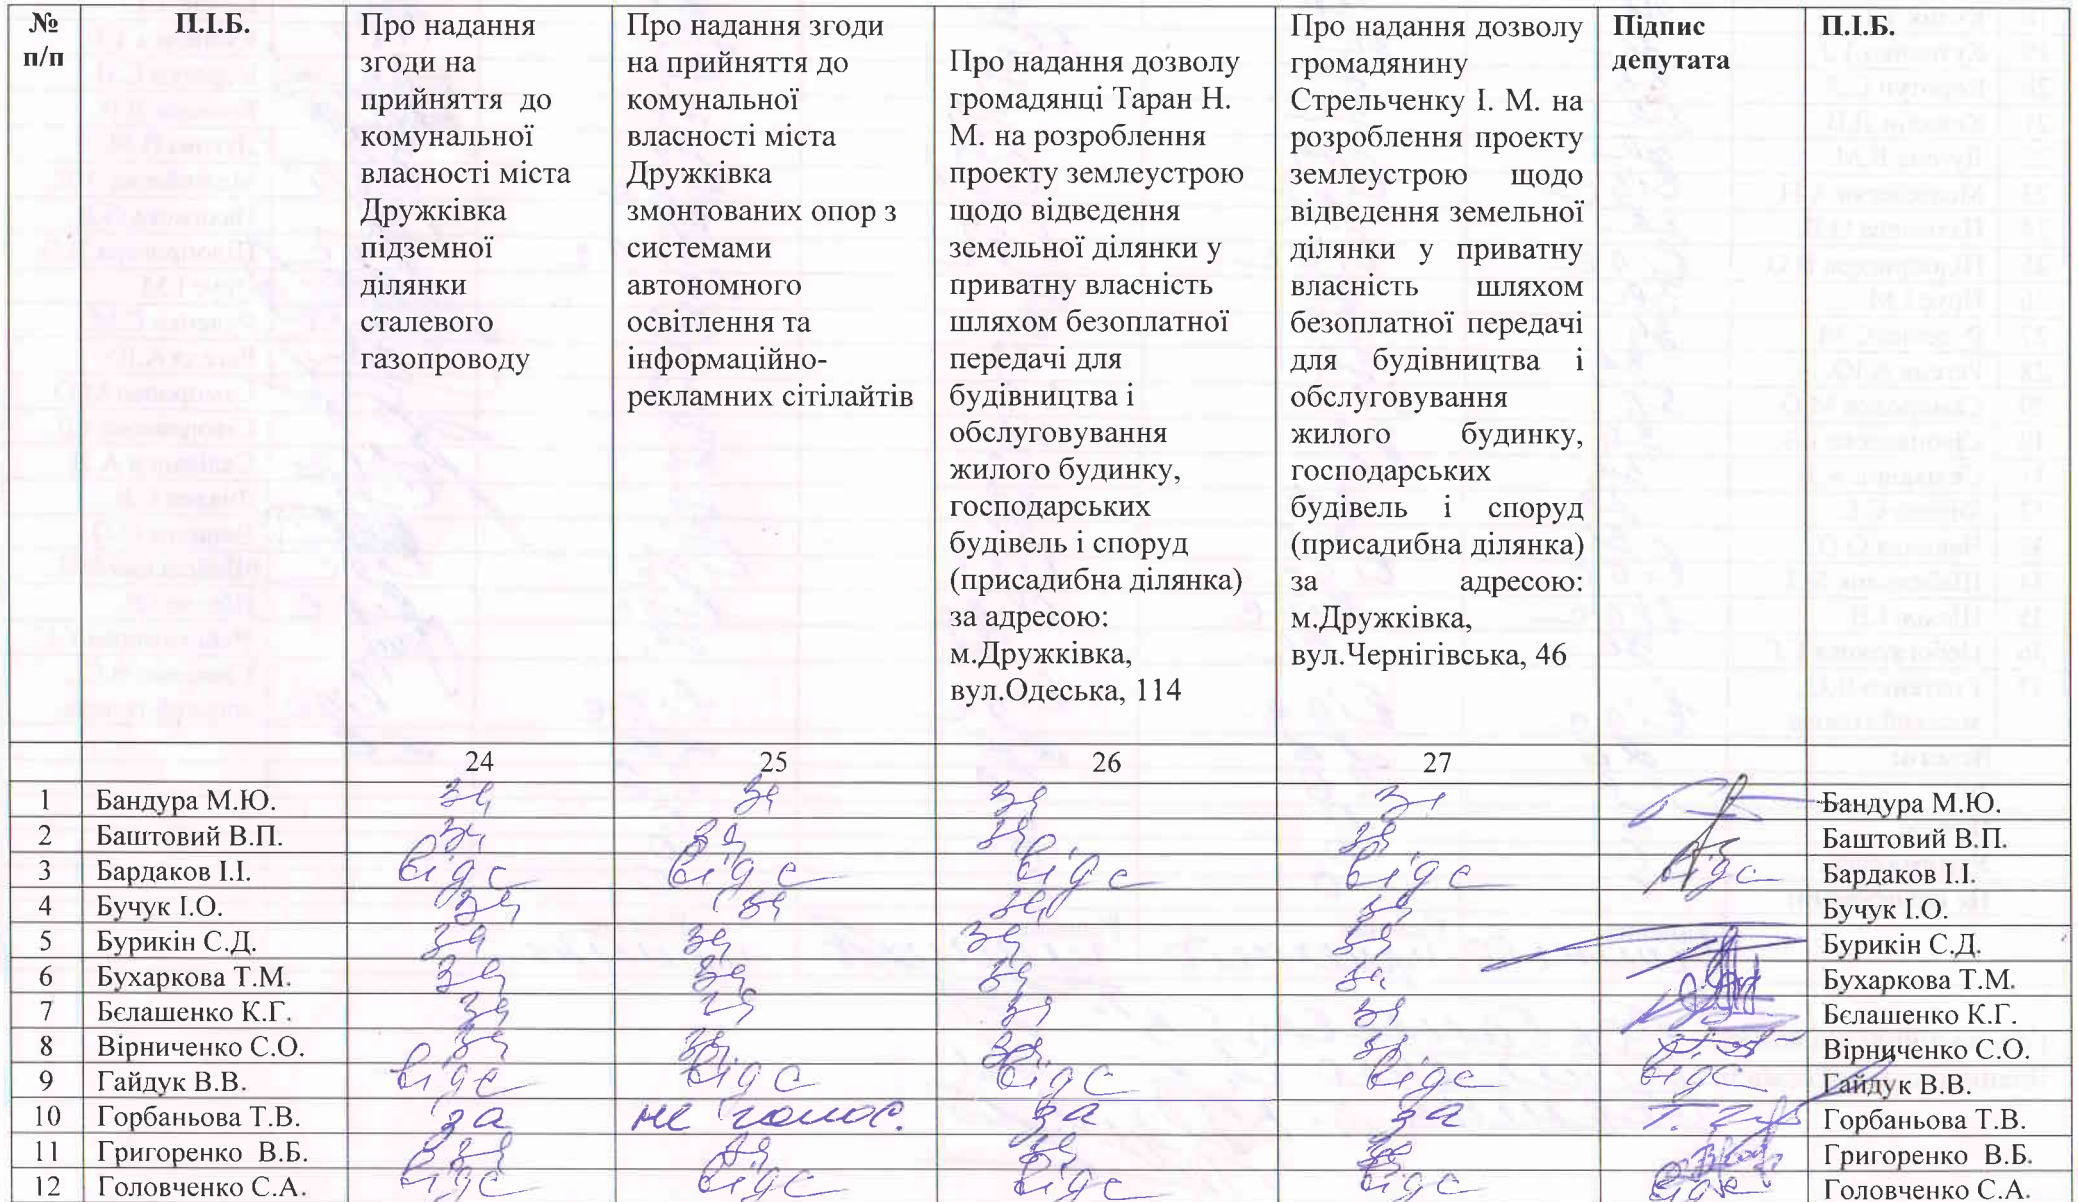 № п/п
П.І.Б.
Про надання
згоди на
прийняття до
комунальної
власності міста
Дружківка
підземної
ділянки
сталевого
газопроводу
Про надання згоди
на прийняття до
комунальної
власності міста
Дружківка
змонтованих опор з
системами
автономного
освітлення та
інформаційно-
рекламних сітілайтів
Про надання дозволу
громадянці Таран Н.
М. на розроблення
проекту землеустрою
щодо відведення
земельної ділянки у
приватну власність
шляхом безоплатної
передачі для
будівництва і
обслуговування
жилого будинку,
господарських
будівель і споруд
(присадибна ділянка)
за адресою:
м.Дружківка,
вул.Одеська, 114
Про надання дозволу
громадянину
Стрельченку І. М. на
розроблення проекту
землеустрою щодо
відведення земельної
ділянки у приватну
власність шляхом
безоплатної передачі
для будівництва і
обслуговування
жилого будинку,
господарських
будівель і споруд
(присадибна ділянка)
за адресою:
м.Дружківка,
вул.Чернігівська, 46
Підпис
депутата
П.І.Б.
24 25 26 27
1 Бандура М.Ю. за за за за Бандура М.Ю.
2 Баштовий В.П. за за за за Баштовий В.П.
3 Бардаков І.І. відс відс відс відс відс Бардаков І.І.
4 Бучук І.О. за за за за Бучук І.О.
5 Бурикін С.Д. за за за за Бурикін С.Д.
6 Бухаркова Т.М. за за за за Бухаркова Т.М.
7 Бєлашенко К.Г. за за за за Бєлашенко К.Г.
8 Вірниченко С.О. за за за за Вірниченко С.О.
9 Гайдук В.В. відс відс відс відс відс Гайдук В.В.
10 Горбаньова Т.В. за не голос. за за Горбаньова Т.В.
11 Григоренко В.Б. за за за за Григоренко В.Б.
12 Головченко С.А. відс відс відс відс відс Головченко С.А.